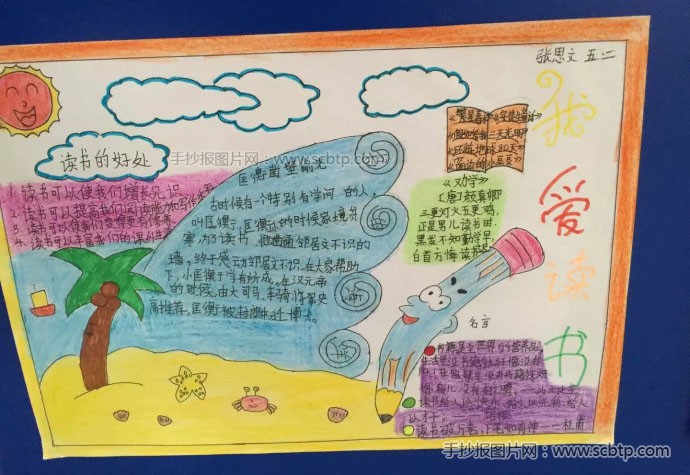 张思文 五二
我爱读书
读书的好处
1. 读书可以使我们增长见识
2. 读书可以提高我们阅读能力和写作水平
3. 读书可以使我们变得有修养
4. 读书可以丰富我们的课余生活
匡衡凿壁偷光
古时候有一个特别有学问 的人，
叫匡衡，匡衡小的时候家境贫
寒，为了读书，他凿通邻居文不识的
墙，终于感动邻居文不识，在大家帮助
下，小匡衡学有所成。在汉元帝
的时候，由大司马、车骑将军史
高推荐，匡衡被封郎中，迁博士。
《假如给我三天光明》
《环游地球80天》
《窗边的小豆豆》
《劝学》
[唐]颜真卿
三更灯火五更鸡，
正是男儿读书时。
黑发不知勤学早，
白首方悔读书迟。
名言
读书破万卷，下笔如有神——杜甫
手抄报图片网·www.scbtp.com
手抄报图片网：www.scbtp.com